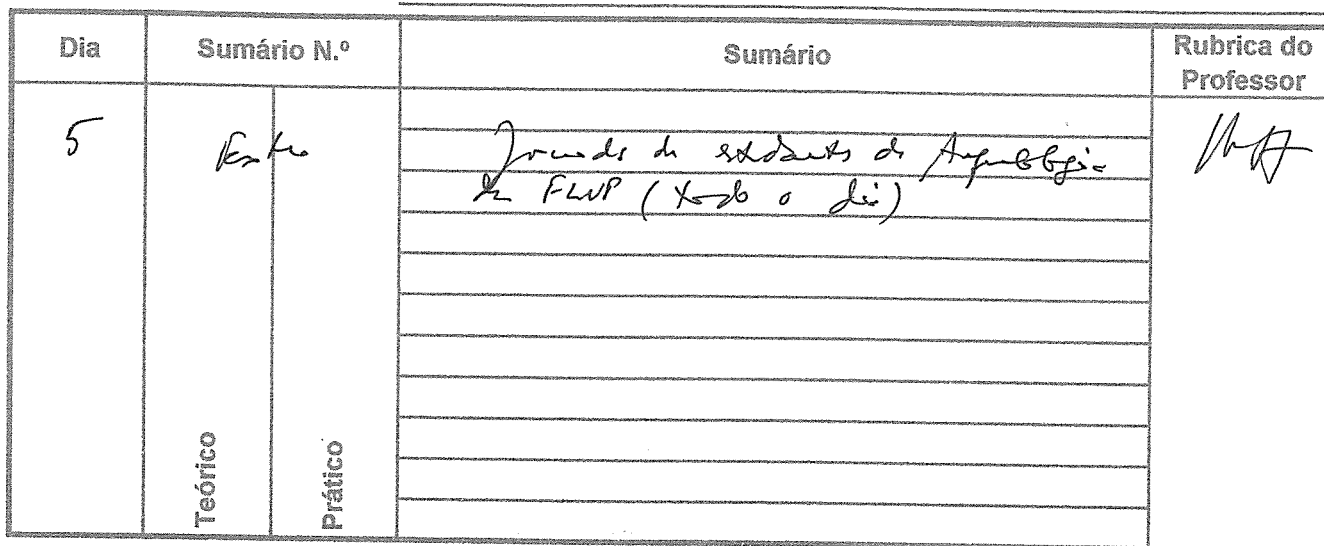 Dia Sumário N.º Sumário Rubrica do Professor
5 Extra Jornadas de estudantes de Arqueologia
da FLUP (todo o dia)
Teórico Prático